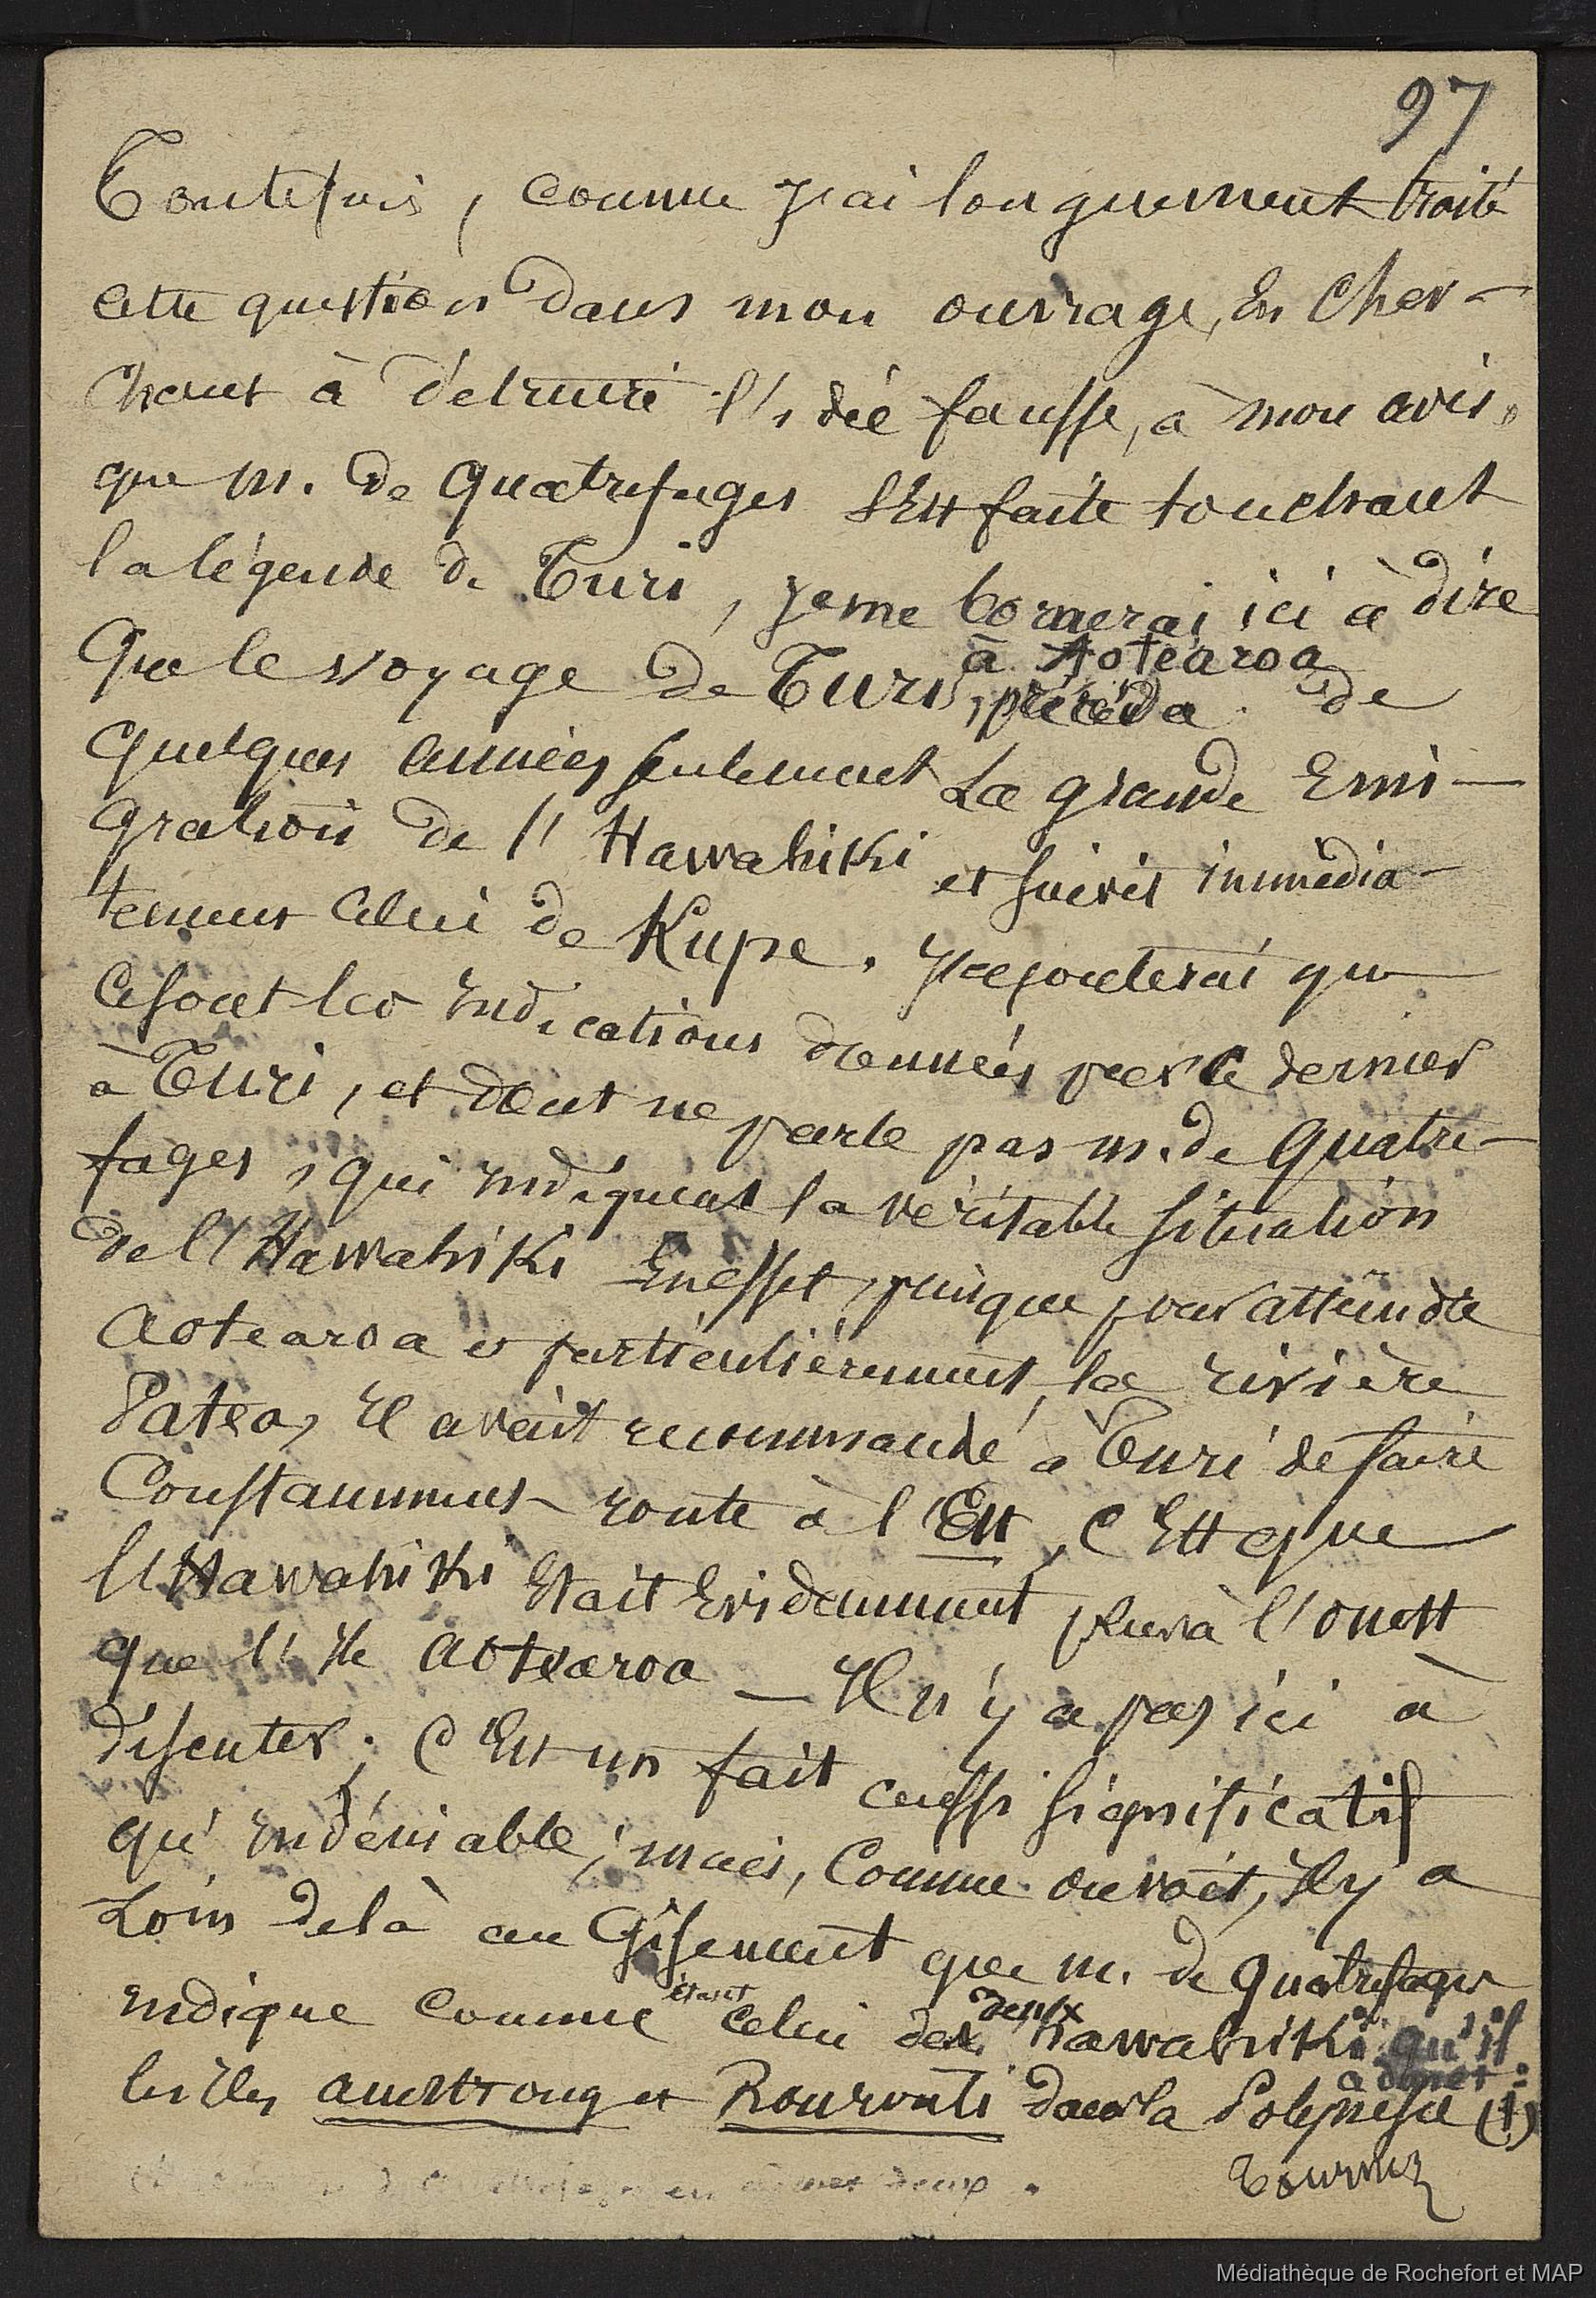 97
Toutefois, comme j'ai longuement traité
cette question dans mon ouvrage, en cher-
chant à détruire l'idée fausse, à mon avis,
que M. de Quatrefages s'est faite touchant
la légende de Turi, je me bornerai ici à dire
que le voyage de Turi à Aotearoa, précéda de
quelques années seulement la grande Emi-
gration de l'Hawahiki et suivit immédia-
tement celui de Kupe. J'ajouterai que
ce sont les indications données par ce dernier
à Turi, et dont ne parle pas M. de Quatre-
fages, qui indiquent la véritable situation
de l'Hawahiki En effet, puisque pour atteindre
Aotearoa et particulièrement, la rivière
Patea, il avait recommandé à Turi de faire
Constamment route à l'Est, c'est que
l'Hawahiki était Evidamment plus à l'ouest
que l'île Aotearoa — Il n'y a pas ici à
discuter; c'est un fait aussi significatif
qu'indéniable; mais, comme on voit, il y a
Loin de là au Gisement que M. de Quatrefages
indique comme étant celui des deux hawahiki qu'il
a
les îles et Rourouti dans la Polynésie (1)
Tournez
en deux.
Médiathèque de Rochefort et MAP